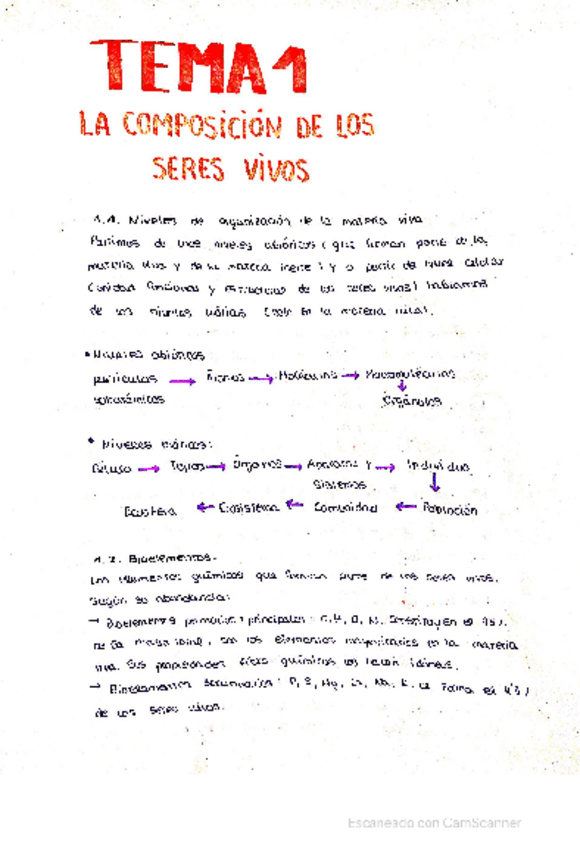 TEMA 1
LA COMPOSICIÓN DE LOS
SERES VIVOS
1.1. Niveles de organización de la materia viva
Partimos de unos niveles abióticos (que forman parte de la
materia viva y de la materia inerte) y a partir de la célula
(unidad funcional y estructural de los seres vivos) hablamos
de los niveles bióticos (solo en la materia viva).
• Niveles abióticos
partículas → Átomos → Moléculas → Macromoléculas
subatómicas ↓ Orgánulos
• Niveles bióticos:
Célula → Tejidos → Órganos → Aparatos y → Individuo
Sistemas ↓
Ecosfera ← Ecosistema ← Comunidad ← Población
1.2. Bioelementos.
Los elementos químicos que forman parte de los seres vivos.
Según su abundancia:
→ Bioelementos primarios principales: C, H, O, N. Constituyen el 95%
de la masa total, son los elementos mayoritarios en la materia
viva. Sus propiedades físico químicas los hacen idóneos.
→ Bioelementos secundarios: P, S, Mg, Ca, Na, K. forma el 4'5%
de los seres vivos.
Escaneado con CamScanner